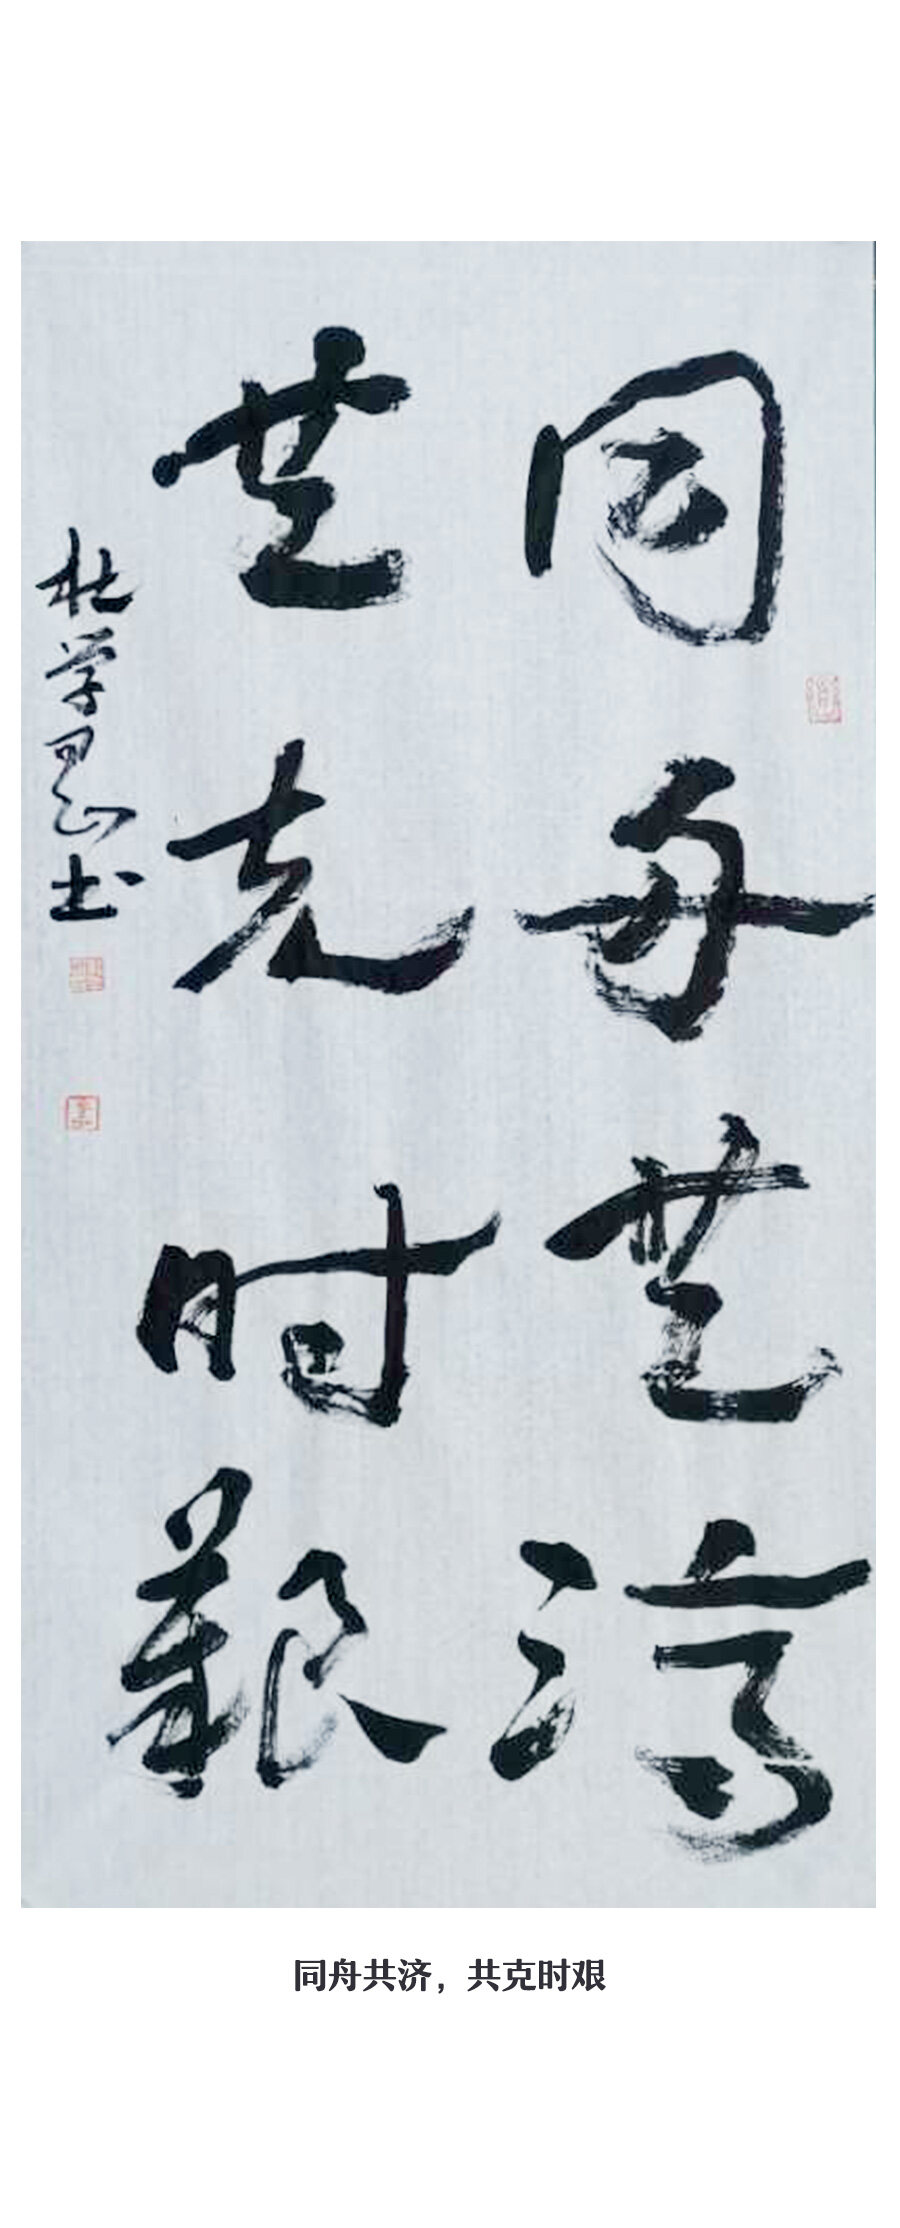 同舟共济
共克时艰
同舟共济，共克时艰